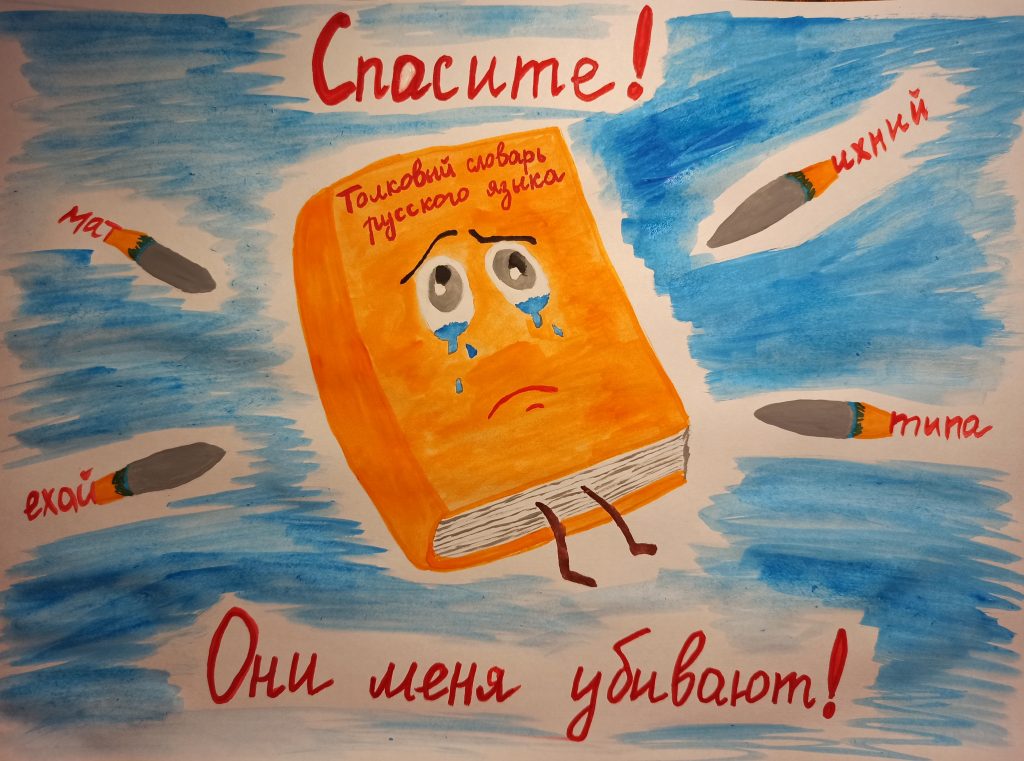 Спасите!
Толковый словарь
русского языка
мат
ихний
ехай
типа
Они меня убивают!